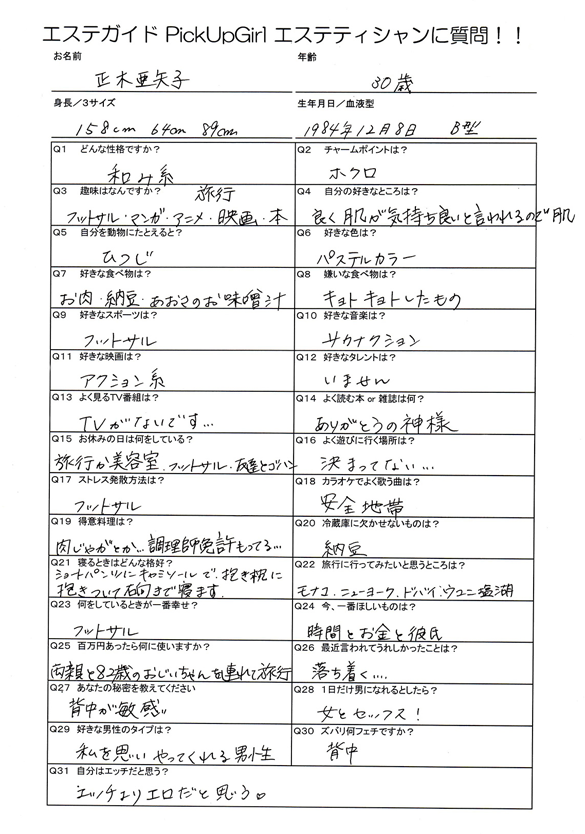 エステガイド PickUpGirl エステティシャンに質問！！
お名前
正木亜矢子
年齢
30歳
身長/3サイズ
158cm 64cm 89cm
生年月日/血液型
1984年12月8日 B型
Q1 どんな性格ですか？
和み系
Q2 チャームポイントは？
ホクロ
Q3 趣味はなんですか？
旅行
フットサル・マンガ・アニメ・映画・本
Q4 自分の好きなところは？
良く肌が気持ち良いと言われるので肌
Q5 自分を動物にたとえると？
ひつじ
Q6 好きな色は？
パステルカラー
Q7 好きな食べ物は？
お肉・納豆・あおさのお味噌汁
Q8 嫌いな食べ物は？
キョトキョトしたもの
Q9 好きなスポーツは？
フットサル
Q10 好きな音楽は？
サカナクション
Q11 好きな映画は？
アクション系
Q12 好きなタレントは？
いません
Q13 よく見るTV番組は？
TVがないです...
Q14 よく読む本 or 雑誌は何？
ありがとうの神様
Q15 お休みの日は何をしている？
旅行か美容室、フットサル・友達とゴハン
Q16 よく遊びに行く場所は？
決まってない...
Q17 ストレス発散方法は？
フットサル
Q18 カラオケでよく歌う曲は？
安全地帯
Q19 得意料理は？
肉じゃがとか...調理師免許もってる...
Q20 冷蔵庫に欠かせないものは？
納豆
Q21 寝るときはどんな格好？
ショートパンツにキャミソールで、抱き枕に
抱きついて右向きで寝ます
Q22 旅行に行ってみたいと思うところは？
モナコ、ニューヨーク、ドバイ、ウユニ塩湖
Q23 何をしているときが一番幸せ？
フットサル
Q24 今、一番ほしいものは？
時間とお金と彼氏
Q25 百万円あったら何に使いますか？
両親と82歳のおじいちゃんを連れて旅行
Q26 最近言われてうれしかったことは？
落ち着く...
Q27 あなたの秘密を教えてください
背中が敏感
Q28 1日だけ男になれるとしたら？
女とセックス！
Q29 好きな男性のタイプは？
私を思いやってくれる男性
Q30 ズバリ何フェチですか？
背中
Q31 自分はエッチだと思う？
エッチよりエロだと思う。